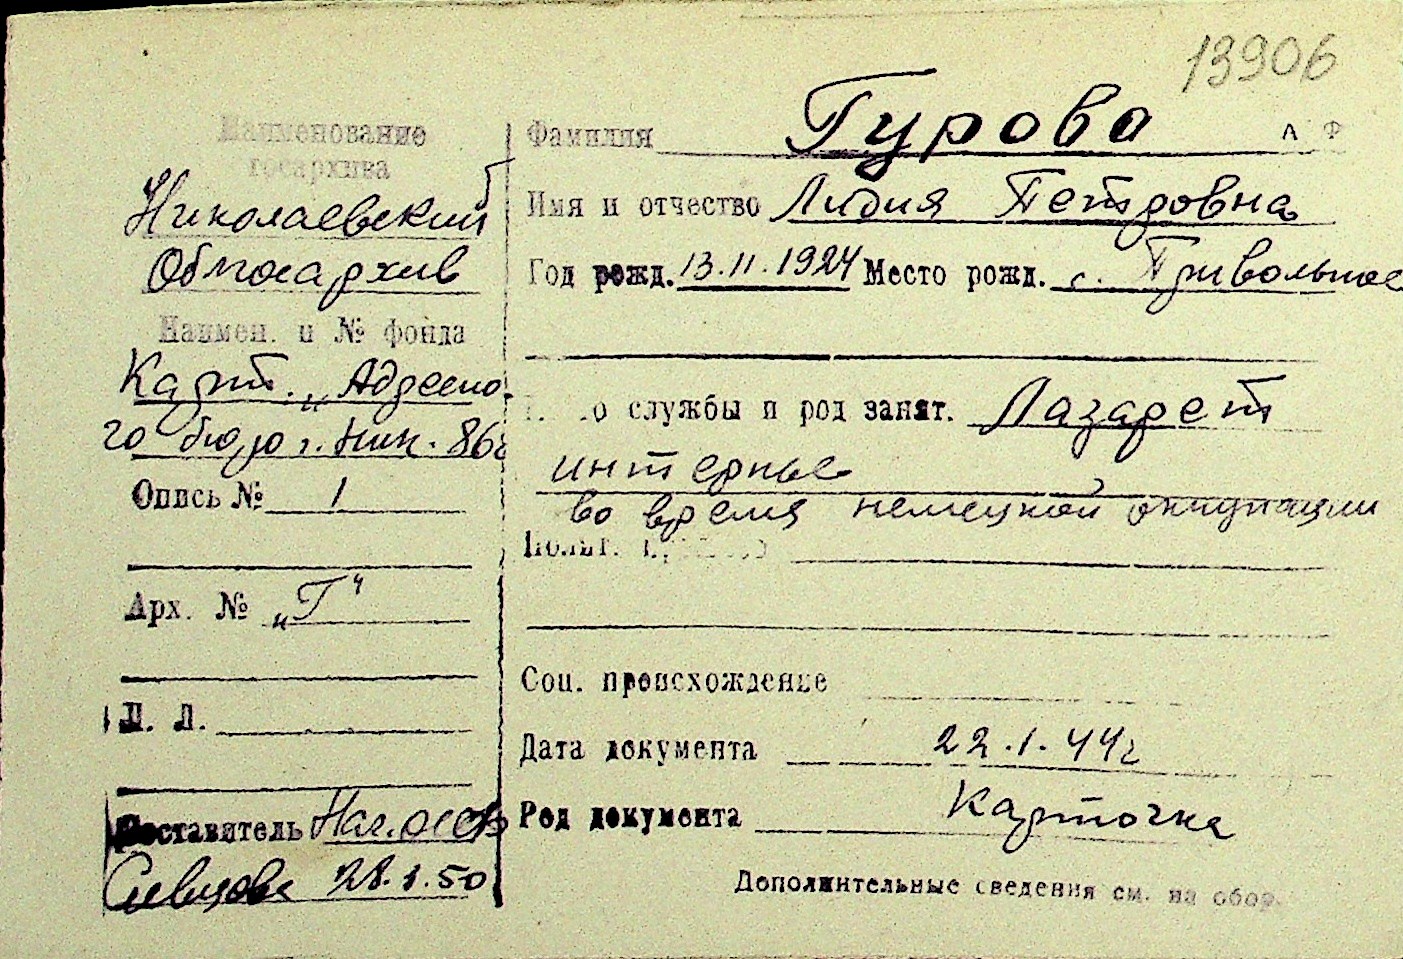 13906
Наименование
госархива
Николаевский
Облгосархив
Наимен. и № фонда
Карт. „Адресно-
го бюро г. Ник. 86г
Опись № 1
Арх. № „Г"
Л. Л.
Составитель Нач.
28.1.50
Фамилия Гурова А Ф
Имя и отчество Лидия Петровна
Год рожд. 13.11.1924 Место рожд. с. Привольное
о службы и род занят. Лазарет
интерные
во время немецкой оккупации
Соц. происхождение
Дата документа 22.1.44г
Род документа Карточка
Дополнительные сведения см. на обор.